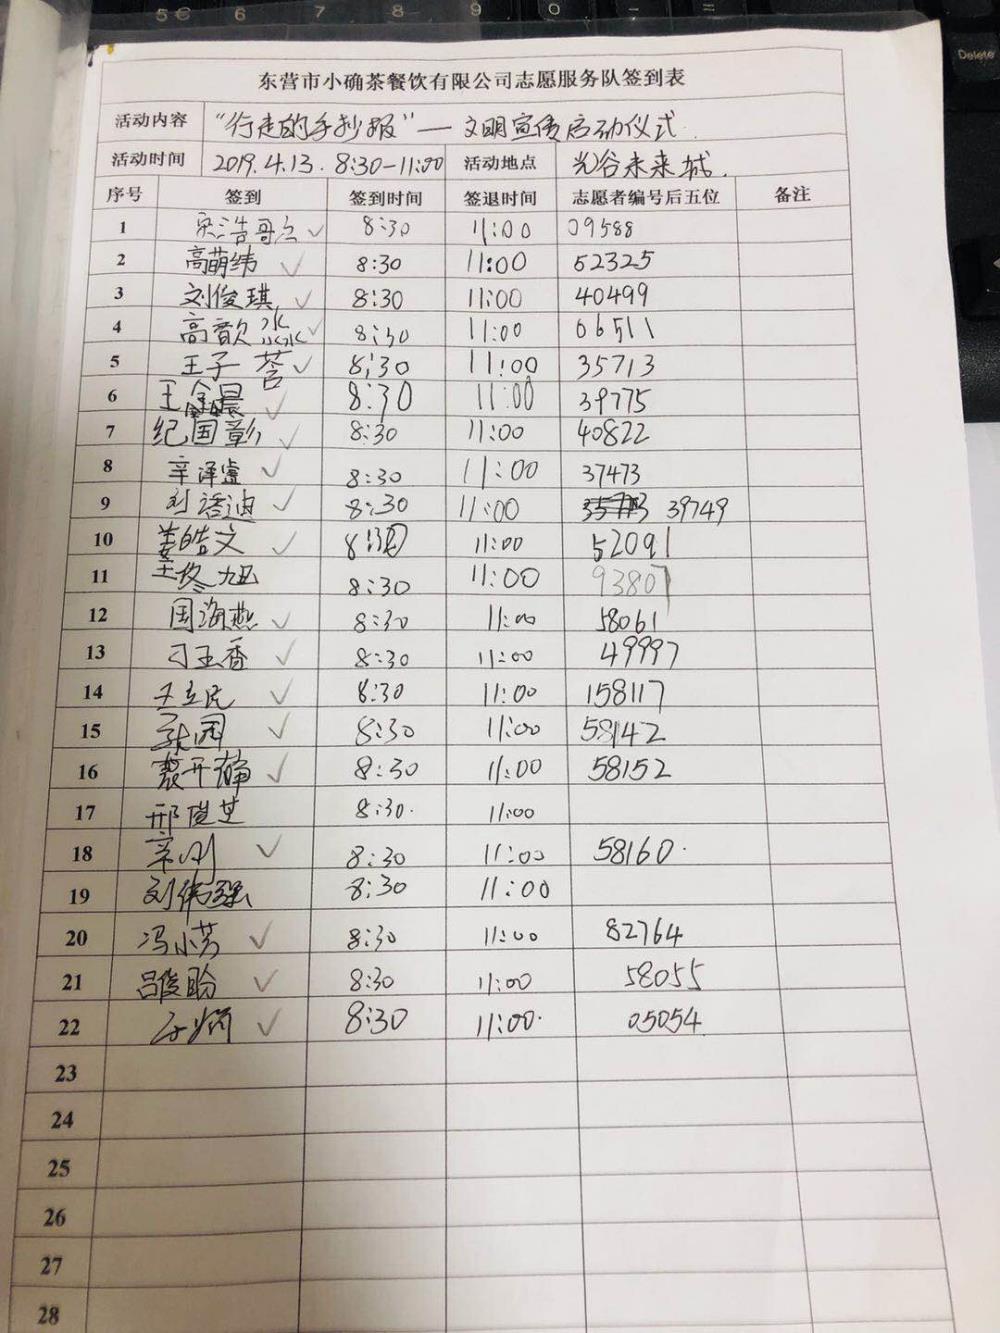 5 € 6 7 8 9 0 - =
Delete
东营市小确茶餐饮有限公司志愿服务队签到表
活动内容 “行走的手抄报”—文明宣传启动仪式.
活动时间 2019.4.13. 8:30-11:00 活动地点 光谷未来城.
序号 签到 签到时间 签退时间 志愿者编号后五位 备注
1 8:30 11:00 09588
2 高萌纬 ✓ 8:30 11:00 52325
3 刘俊琪 ✓ 8:30 11:00 40499
4 高歆淼 ✓ 8:30 11:00 06511
5 王子 ✓ 8:30 11:00 35713
6 王鑫晨 ✓ 8:30 11:00 39775
7 纪国彰 ✓ 8:30 11:00 40822
8 辛泽睿 ✓ 8:30 11:00 37473
9 刘语迪 ✓ 8:30 11:00 39749
10 姜皓文 ✓ 8:30 11:00 52091
11 王佟旭 8:30 11:00 93807
12 国海燕 ✓ 8:30 11:00 58061
13 刁玉香 ✓ 8:30 11:00 49997
14 王立民 ✓ 8:30 11:00 158117
15 ✓ 8:30 11:00 58142
16 ✓ 8:30 11:00 58152
17 8:30. 11:00
18 辛刚 ✓ 8:30 11:00 58160.
19 刘伟强 8:30 11:00
20 冯小芳 ✓ 8:30 11:00 82764
21 吕俊盼 ✓ 8:30 11:00 58055
22 ✓ 8:30 11:00. 05054
23
24
25
26
27
28